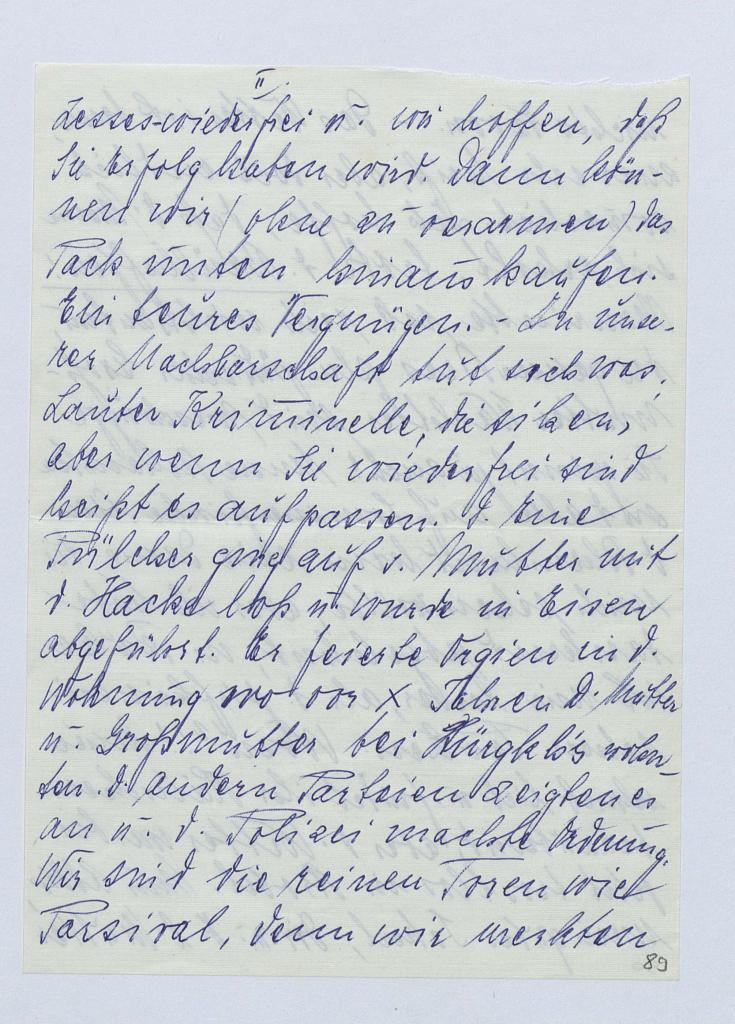 II.
zesses wieder frei u. wir hoffen, daß
Sie Erfolg haben wird. Dann kön-
nen wir (ohne zu verarmen) das
Pack unten hinauskaufen.
Ein teures Vergnügen. - In unse-
rer Nachbarschaft tut sich was.
Lauter Kriminelle, die sitzen,
aber wenn Sie wieder frei sind
heißt es aufpassen. D. Eine
Pülcher ging auf s. Mutter mit
d. Hacke los u. wurde in Eisen
abgeführt. Er feierte Orgien in d.
Wohnung wo vor X Jahren D. Mutter
u. Großmutter bei wohn-
ten. d. andern Parteien zeigten es
an u. d. Polizei machte Ordnung.
Wir sind die reinen Toren wie
Parsival, denn wir merkten
89